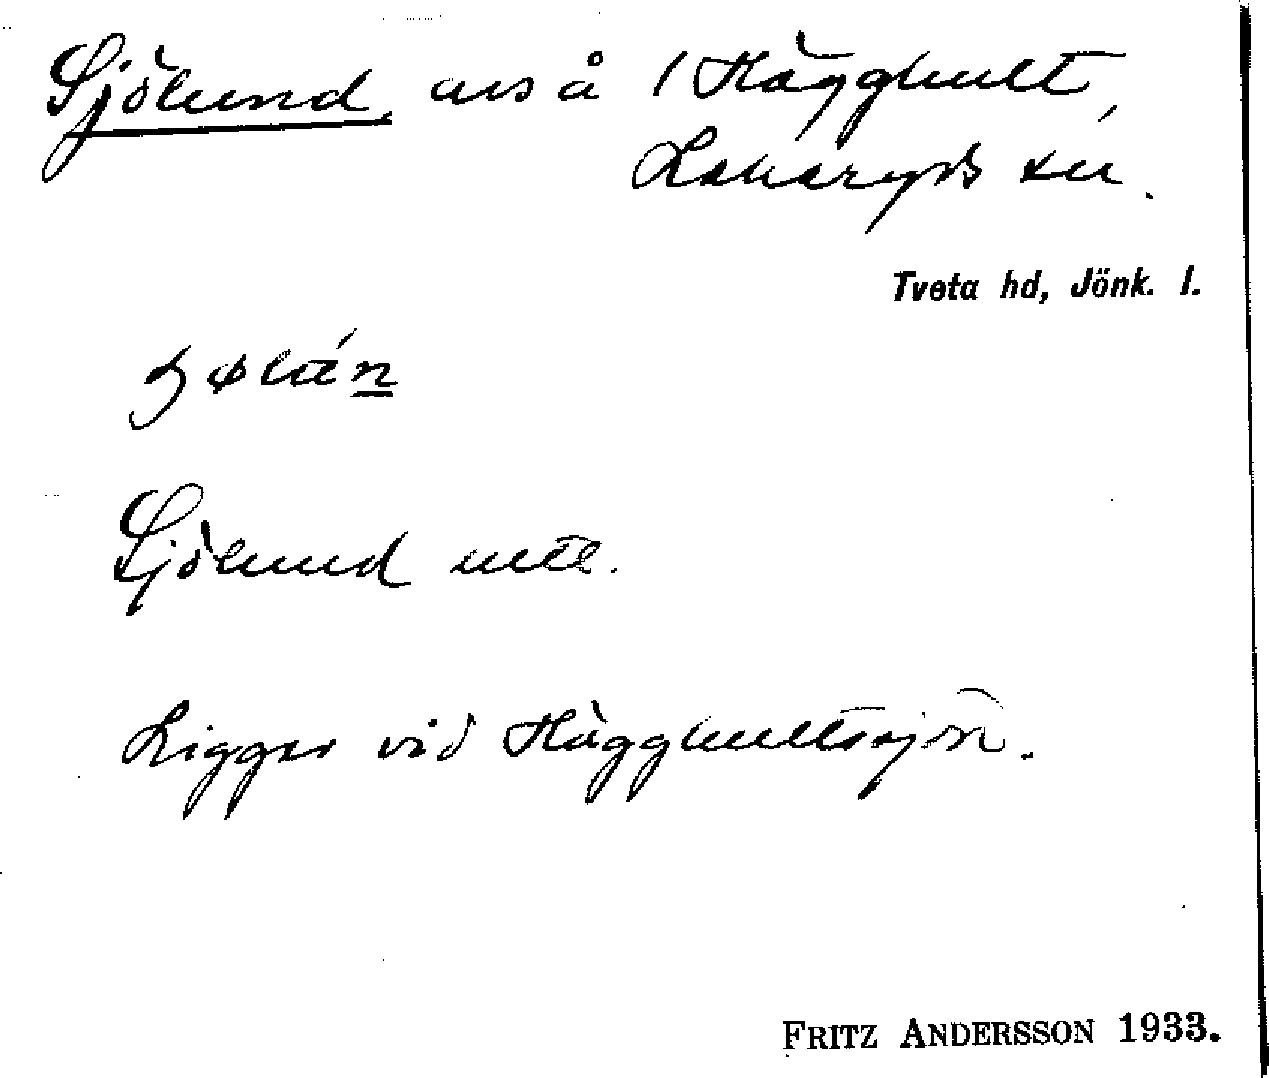 Sjölund, avs å 1 Hägghult,
Lekeryds sn.
Tveta hd, Jönk. l.
Sjölund uttl.
Ligger vid Hägghultssjön.
FRITZ ANDERSSON 1933.